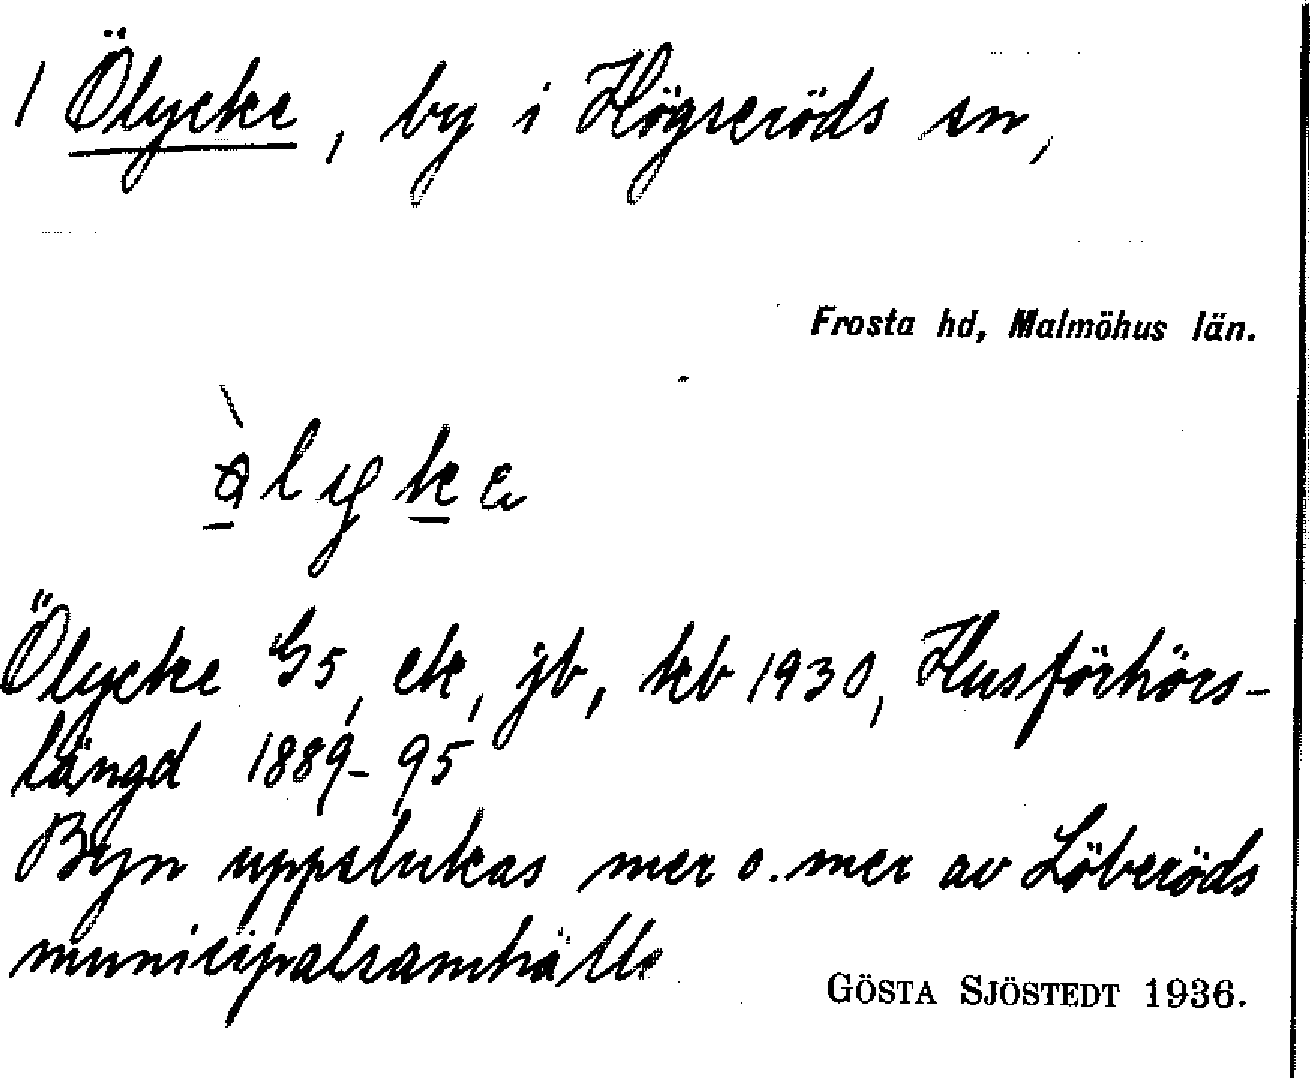 1 Ölycke, by i Högseröds sn,
Frosta hd, Malmöhus län.
Ölycke G5, ek, jb, kb 1930, Husförhörs-
längd 1889-95
Byn uppslukas mer o. mer av Löberöds
municipalsamhälle
GÖSTA SJÖSTEDT 1936.